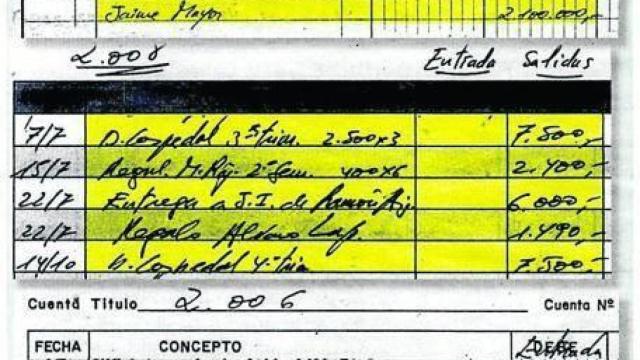 Jaime Mayor 2.100.000,-
2.008 Entrada Salidas
7/7 D. Cospedal 3º trim. 2.500x3 7.500,-
15/7 2º Sem. 400x6 2.400,-
22/7 Entrega a J.I. de 6.000,-
22/7 Regalo Alvaro Lap. 1.490,-
14/10 D. Cospedal 4º trim 7.500,-
Cuenta Titulo 2.006 Cuenta Nº
FECHA CONCEPTO DEBE Entrada